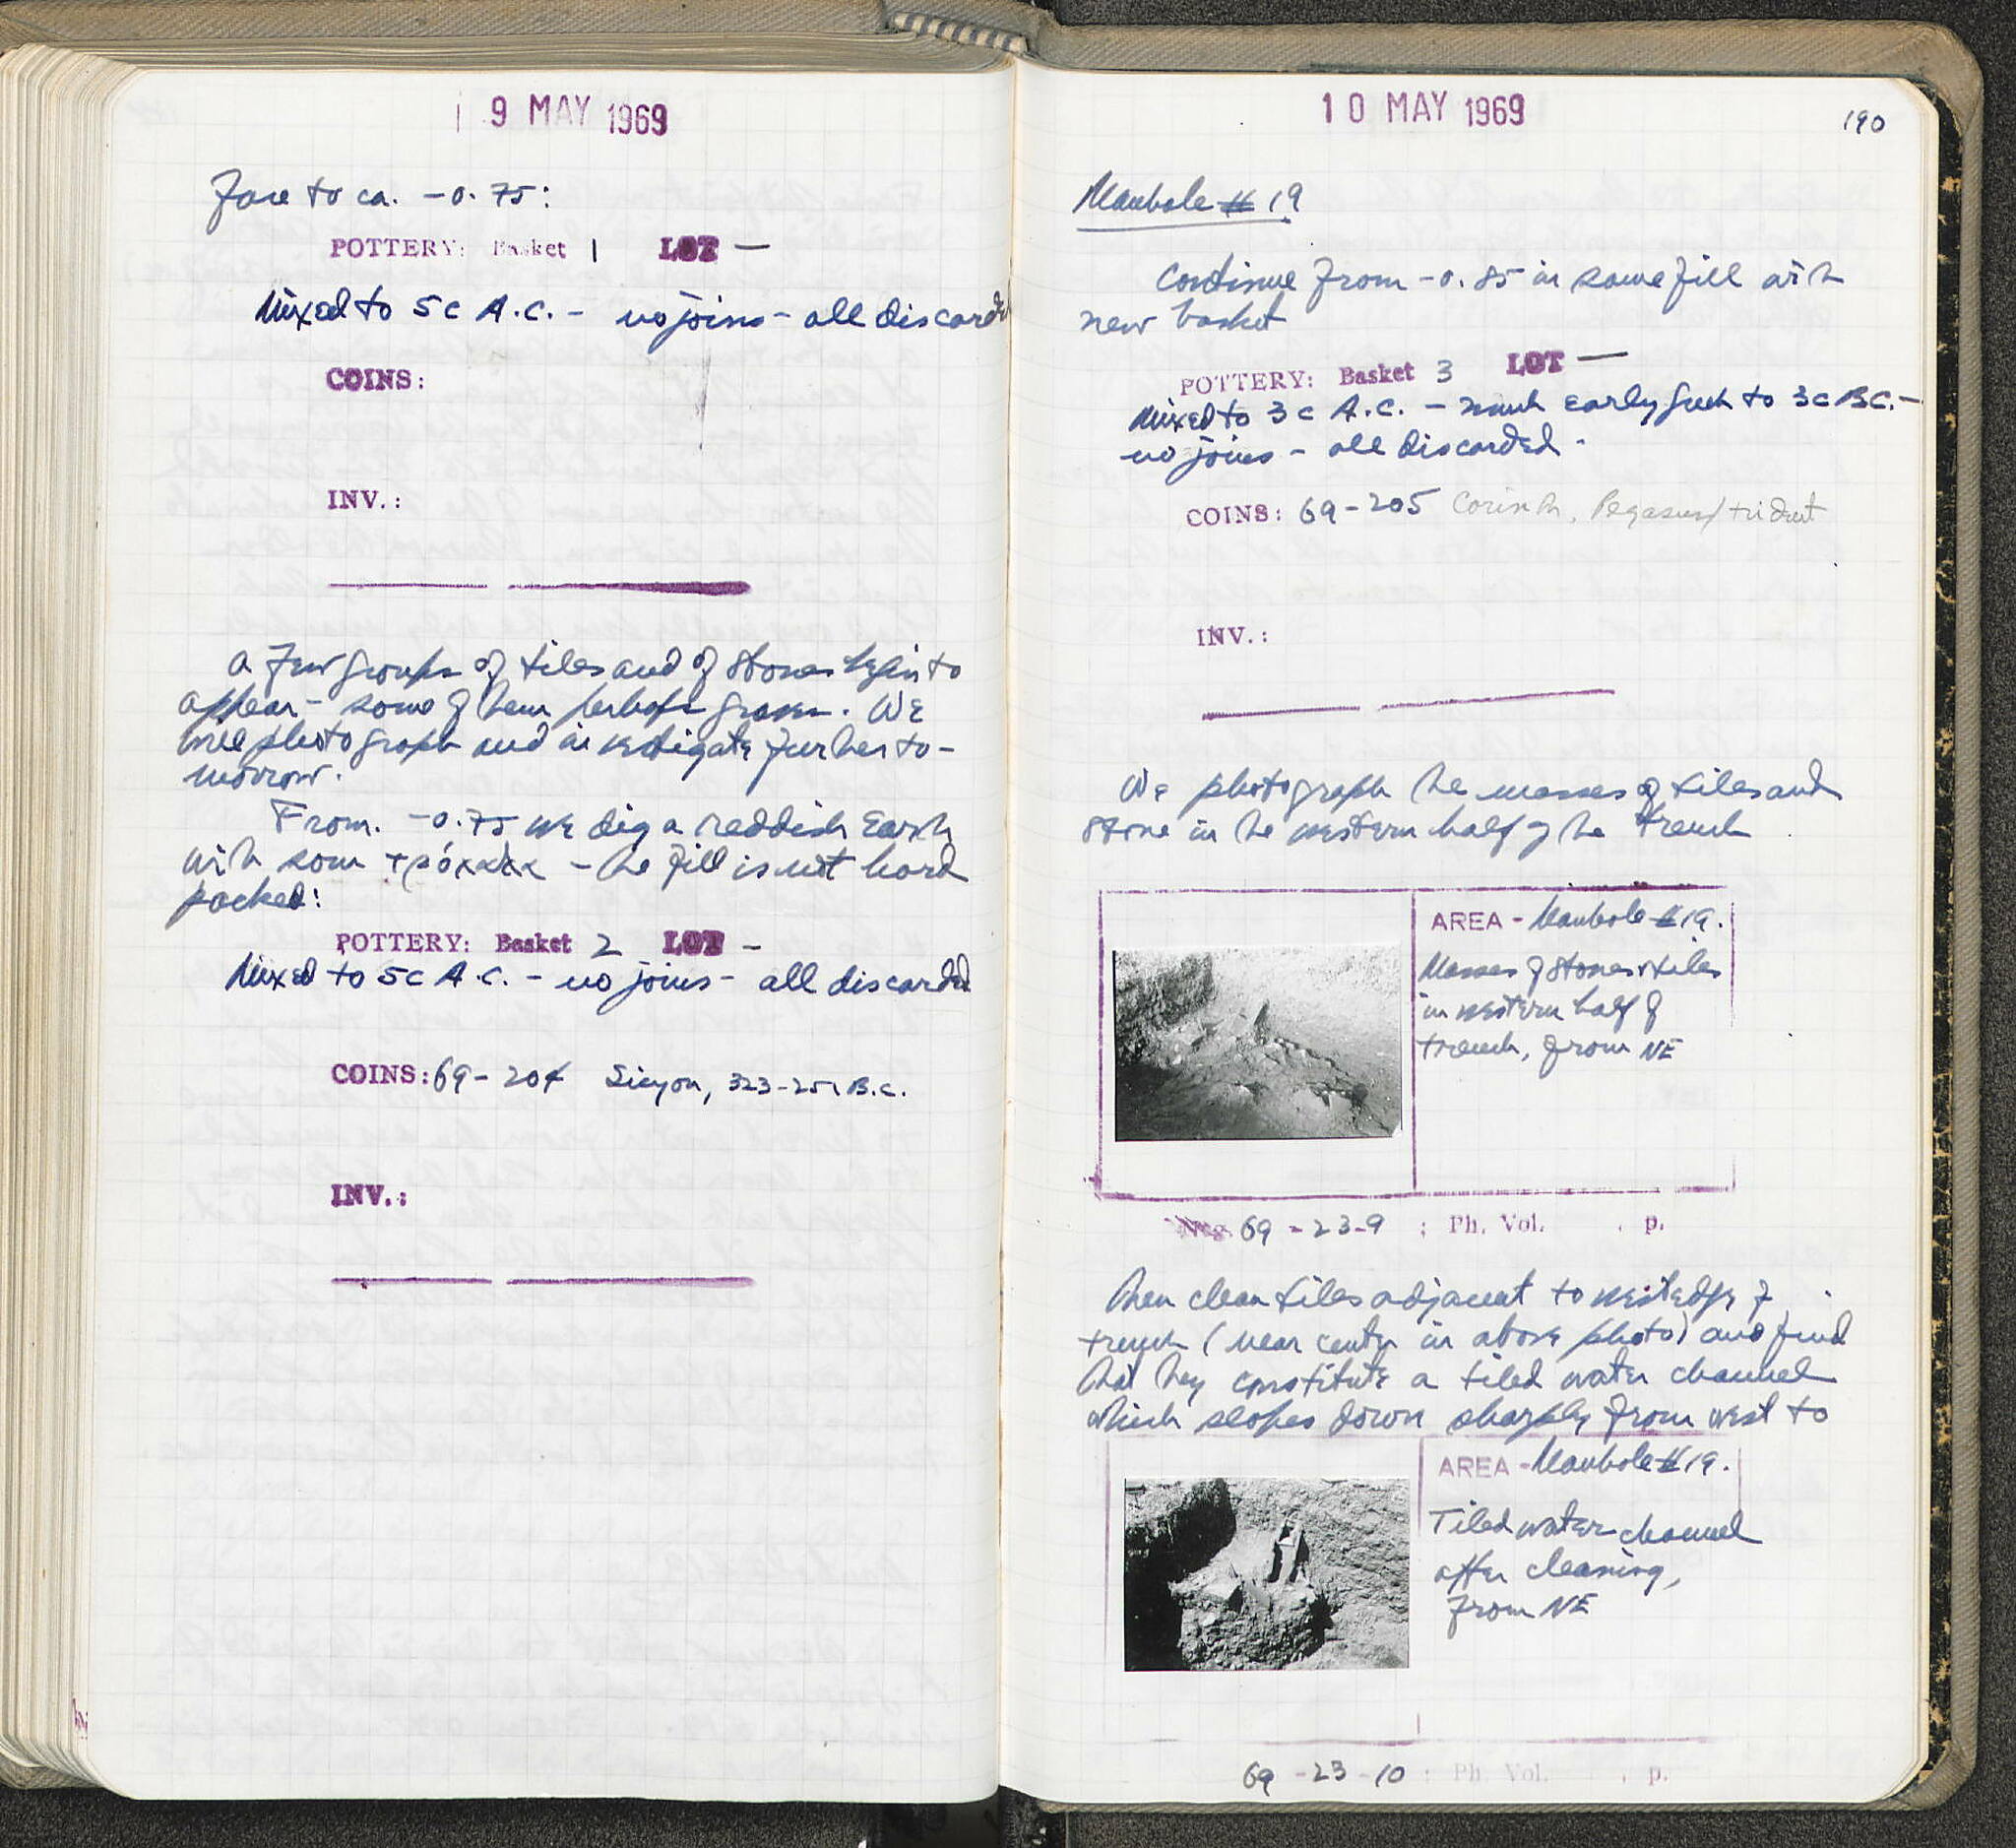 9 MAY 1969
Fase to ca. -0.75:
POTTERY: Basket 1 LOT —
Mixed to 5c A.C. - no joins - all discarded
COINS:
INV.:
A few groups of tiles and of stones begin to
appear - some of them perhaps graves. We
will photograph and investigate further to-
morrow.
From -0.75 we dig a reddish earth
with som - the fill is not hard
packed:
POTTERY: Basket 2 LOT -
Mixed to 5c A.C. - no joins - all discarded
COINS: 69-204 Sicyon, 323-251 B.C.
INV.:
10 MAY 1969
190
Manhole # 19
Continue from -0.85 in same fill with
new basket
POTTERY: Basket 3 LOT —
Mixed to 3c A.C. - much early such to 3c B.C. -
no joins - all discarded -
COINS: 69-205 Corinth, Pegasus/trident
INV.:
We photograph the masses of tiles and
stone in the western half of the trench
AREA - Manhole #19.
Masses of stones & tiles
in western half of
trench, from NE
Neg. 69-23-9 ; Ph. Vol. , p.
Then clean tiles adjacent to west edge of
trench (near center in above photo) and find
that they constitute a tiled water channel
which slopes down sharply from west to
AREA - Manhole #19.
Tiled water channel
after cleaning,
from NE
69-23-10 ; Ph. Vol. , p.